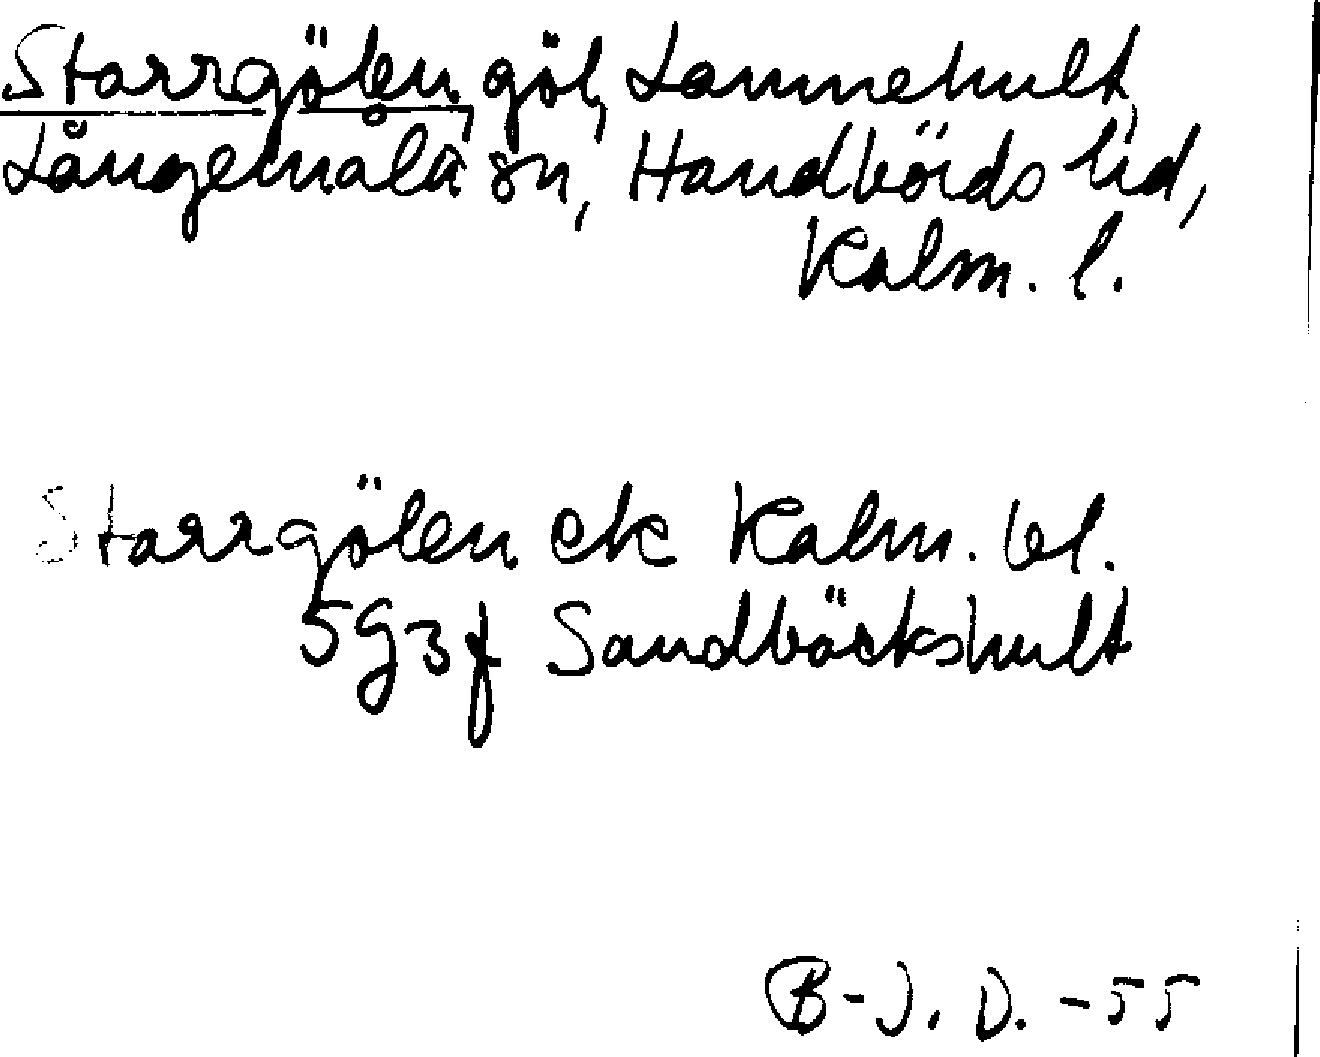 Starrgölen, göl, Lammehult,
Långemåla sn, Handbörds hd,
Kalm. l.
Starrgölen ek Kalm. bl.
5G3f Sandbäckshult
B-J. D. -55